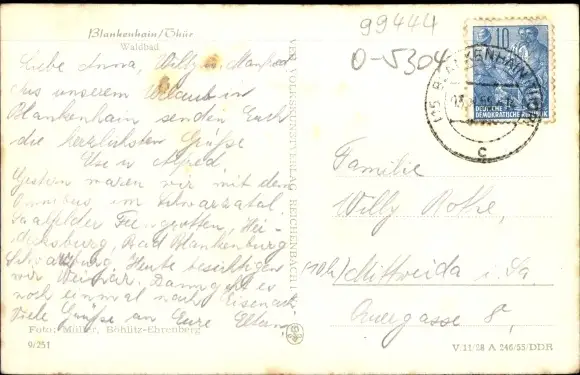 Blankenhain/Thür
Waldbad
Liebe Anna, Willy u. Manfred
Aus unserem Urlaub in
Blankenhain senden Euch
die herzlichsten Grüße
Gestern waren wir mit dem
Omnibus im Schwarzatal.
Saalfelder Feengrotten, Hei-
decksburg, Bad Blankenburg
Schwarzburg, Heute besichtigen
wir Weimar. Dann geht es
noch einmal nach Eisenach.
Viele Grüße an Eure Eltern
Foto: Müller, Böhlitz-Ehrenberg
9/251
VER VOLKSKUNSTVERLAG REICHENBACH I
99444
O-5304
10
DEUTSCHE
DEMOKRATISCHE REPUBLIK
BLANKENHAIN
c
Familie
Willy Rothe,
(10b) Mittweida i. Sa.
Quergasse 8,
V 11/28 A 246/55/DDR